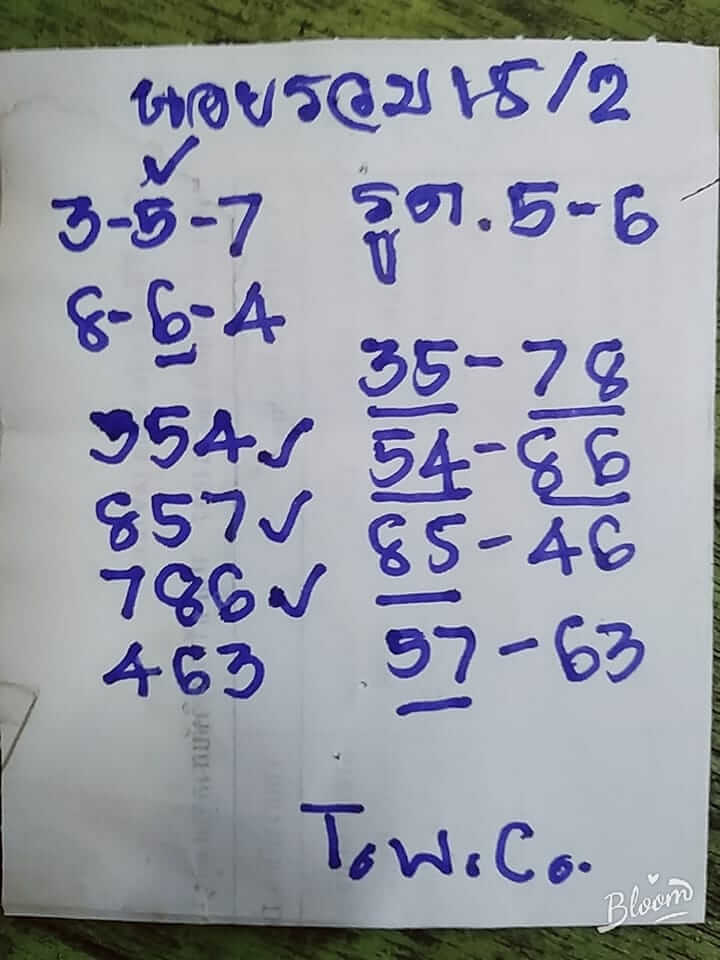 หอยรวม 15/2
3-5-7
8-6-4
354✓
857✓
786✓
463
รูด.5-6
35-78
54-86
85-46
57-63
T.W.C.
Bloom